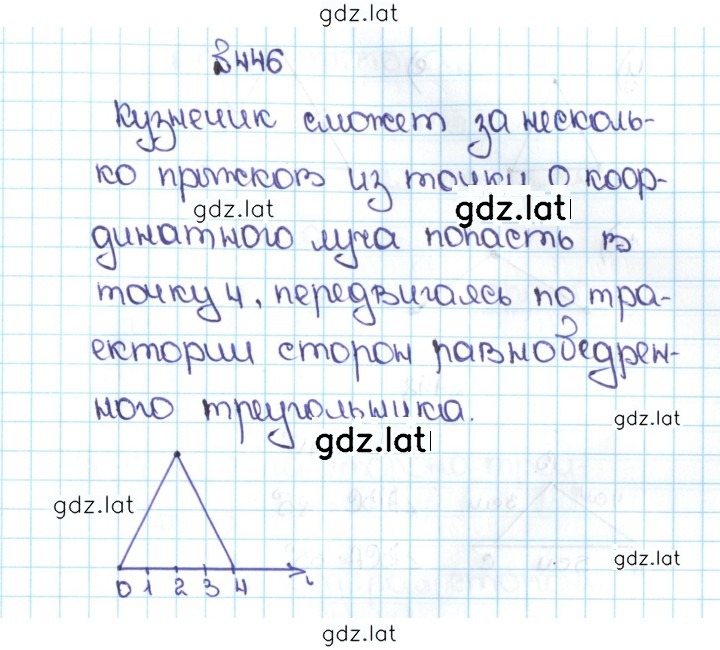 gdz.lat
446
Кузнечик сможет за несколь-
ко прыжков из точки 0 коор-
gdz.lat
gdz.lat
динатного луча попасть в
точку 4, передвигаясь по тра-
ектории сторон равнобедрен-
ного треугольника.
gdz.lat
gdz.lat
gdz.lat
gdz.lat
0 1 2 3 4
gdz.lat